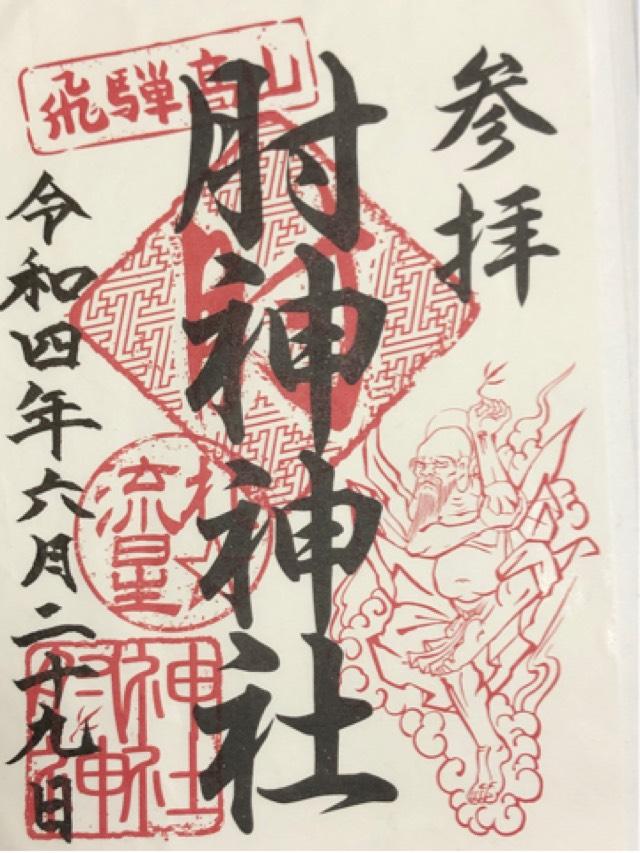 参拝
肘神神社
飛騨高山
令和四年六月二十九日
流星
肘神
神社